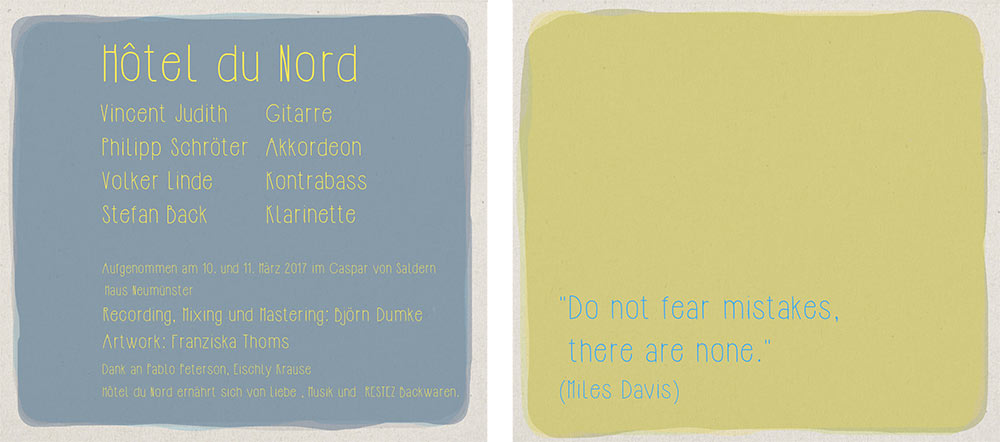 Hôtel du Nord
Vincent Judith Gitarre
Philipp Schröter Akkordeon
Volker Linde Kontrabass
Stefan Back Klarinette
Aufgenommen am 10. und 11. März 2017 im Caspar von Saldern
Haus Neumünster
Recording, Mixing und Mastering: Björn Dumke
Artwork: Franziska Thoms
Dank an Pablo Peterson, Eischly Krause
Hôtel du Nord ernährt sich von Liebe , Musik und RESTEZ Backwaren.
"Do not fear mistakes,
there are none."
(Miles Davis)